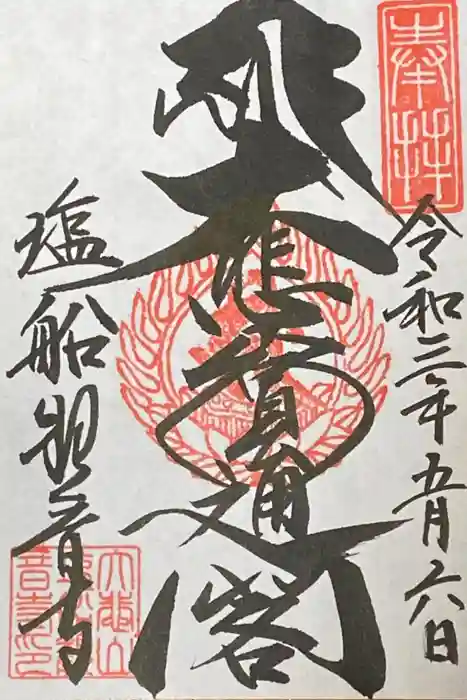 奉拝
令和三年五月六日
大悲圓通閣
塩船観音寺
大悲山
音寺印